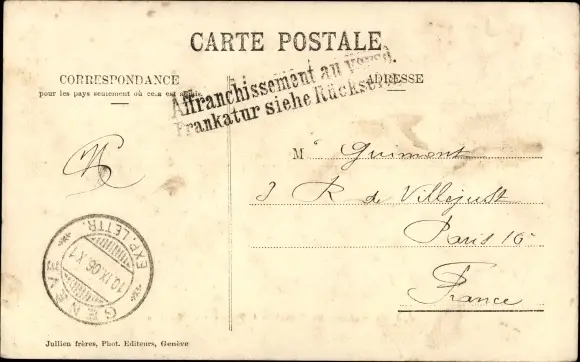 CARTE POSTALE
CORRESPONDANCE
pour les pays seulement où cela est admis.
ADRESSE
Affranchissement au verso.
Frankatur siehe Rückseite.
M Guimont
3 R de Villejust
Paris 16
France
GENÈVE
EXP. LETTR.
10.IX.06.XI
Jullien frères, Phot. Editeurs, Genève